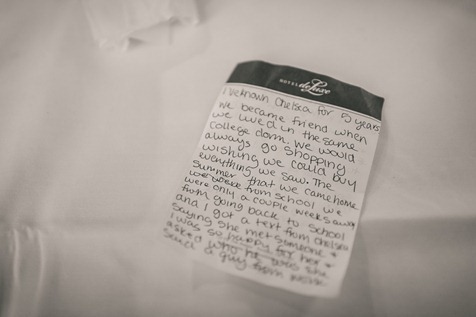 HOTEL deLuxe
I've known Chelsea for 5 years
We became friend when
we lived in the same
college dorm. We would
always go shopping
wishing we could buy
everything we saw. The
summer that we came home
from school we
were only a couple weeks away
from going back to school
and I got a text from Chelsea
saying she met someone &
I was so happy for her &
asked who he was she
said a guy from work